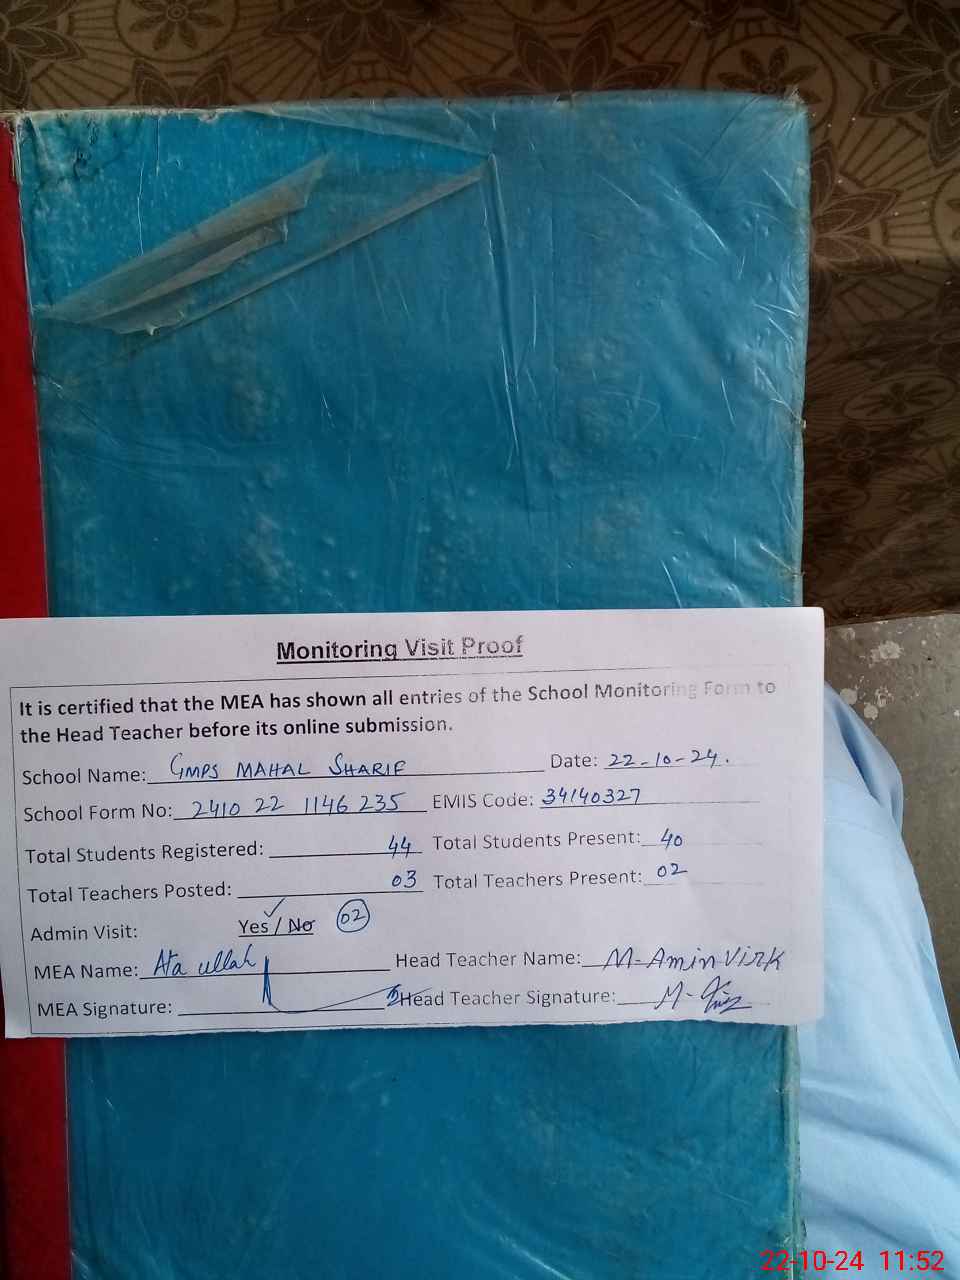 Monitoring Visit Proof
It is certified that the MEA has shown all entries of the School Monitoring Form to
the Head Teacher before its online submission.
School Name: GMPS MAHAL SHARIF Date: 22-10-24.
School Form No: 2410 22 1146 235 EMIS Code: 34140327
Total Students Registered: 44 Total Students Present: 40
Total Teachers Posted: 03 Total Teachers Present: 02
Admin Visit: Yes / No 02
MEA Name: Ata ullah Head Teacher Name: M-Amin Virk
MEA Signature: Head Teacher Signature:
22-10-24 11:52